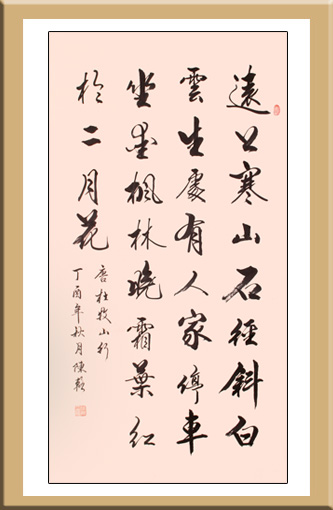 遠上寒山石徑斜白
雲生處有人家停車
坐愛楓林晚霜葉紅
於二月花
唐杜牧山行
丁酉年秋月陳